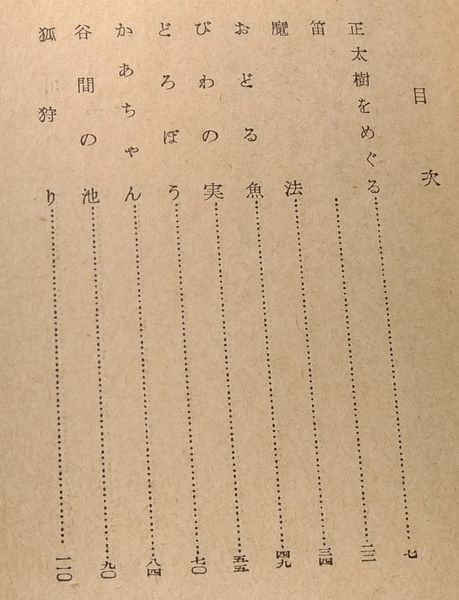 目次
正太樹をめぐる……七
笛……二二
魔法……三四
おどる魚……四九
びわの実……五五
どろぼう……七〇
かあちゃん……八四
谷間の池……九〇
狐狩り……一一〇